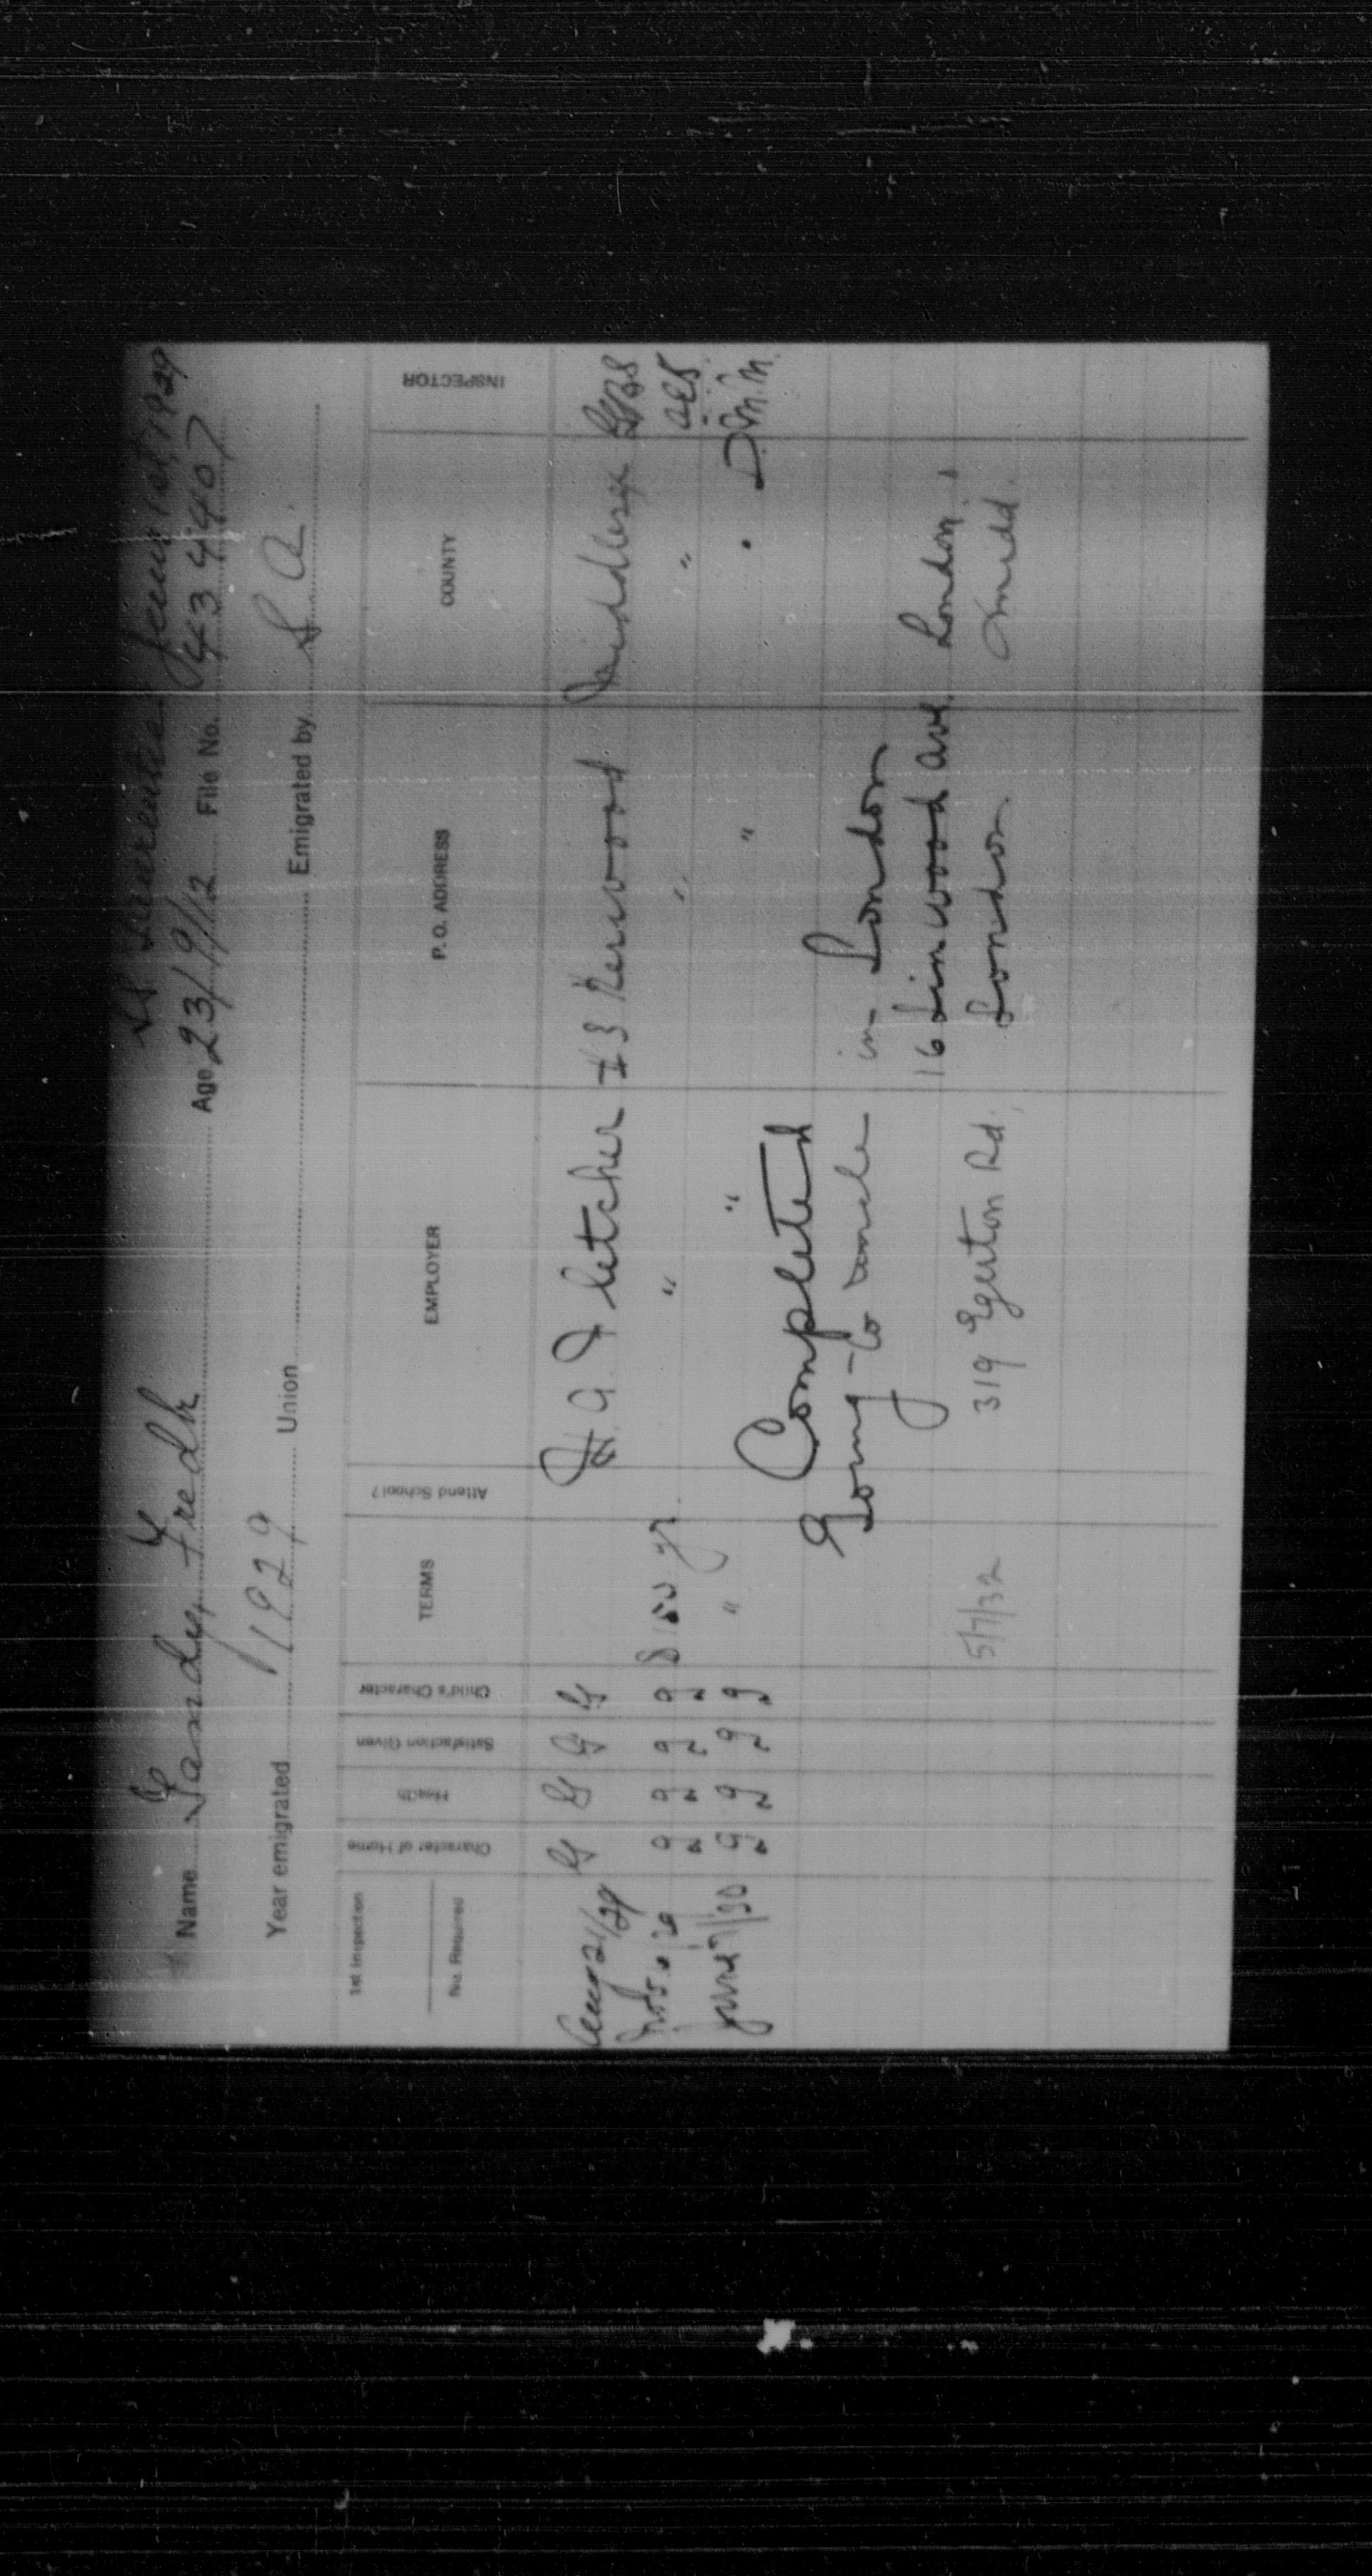 June 1st, 1929
Name Landy, Fredk Age 23/9/12 File No. 434407
Year emigrated 1929 Union Emigrated by S A.
1st Inspection
No. Required Character of Home Health Satisfaction Given Child's Character TERMS Attend School? EMPLOYER P. O. ADDRESS COUNTY INSPECTOR
Aug 21/29 G G G G H. A. Fletcher #3 Kerwood Middlesex
29 g g g g yr. " " "
June 7/30 g g g g " " " D.M.M.
Completed
Going to uncle in London
16 Linwood ave. London
5/7/32 319 Egerton Rd. London Midd.